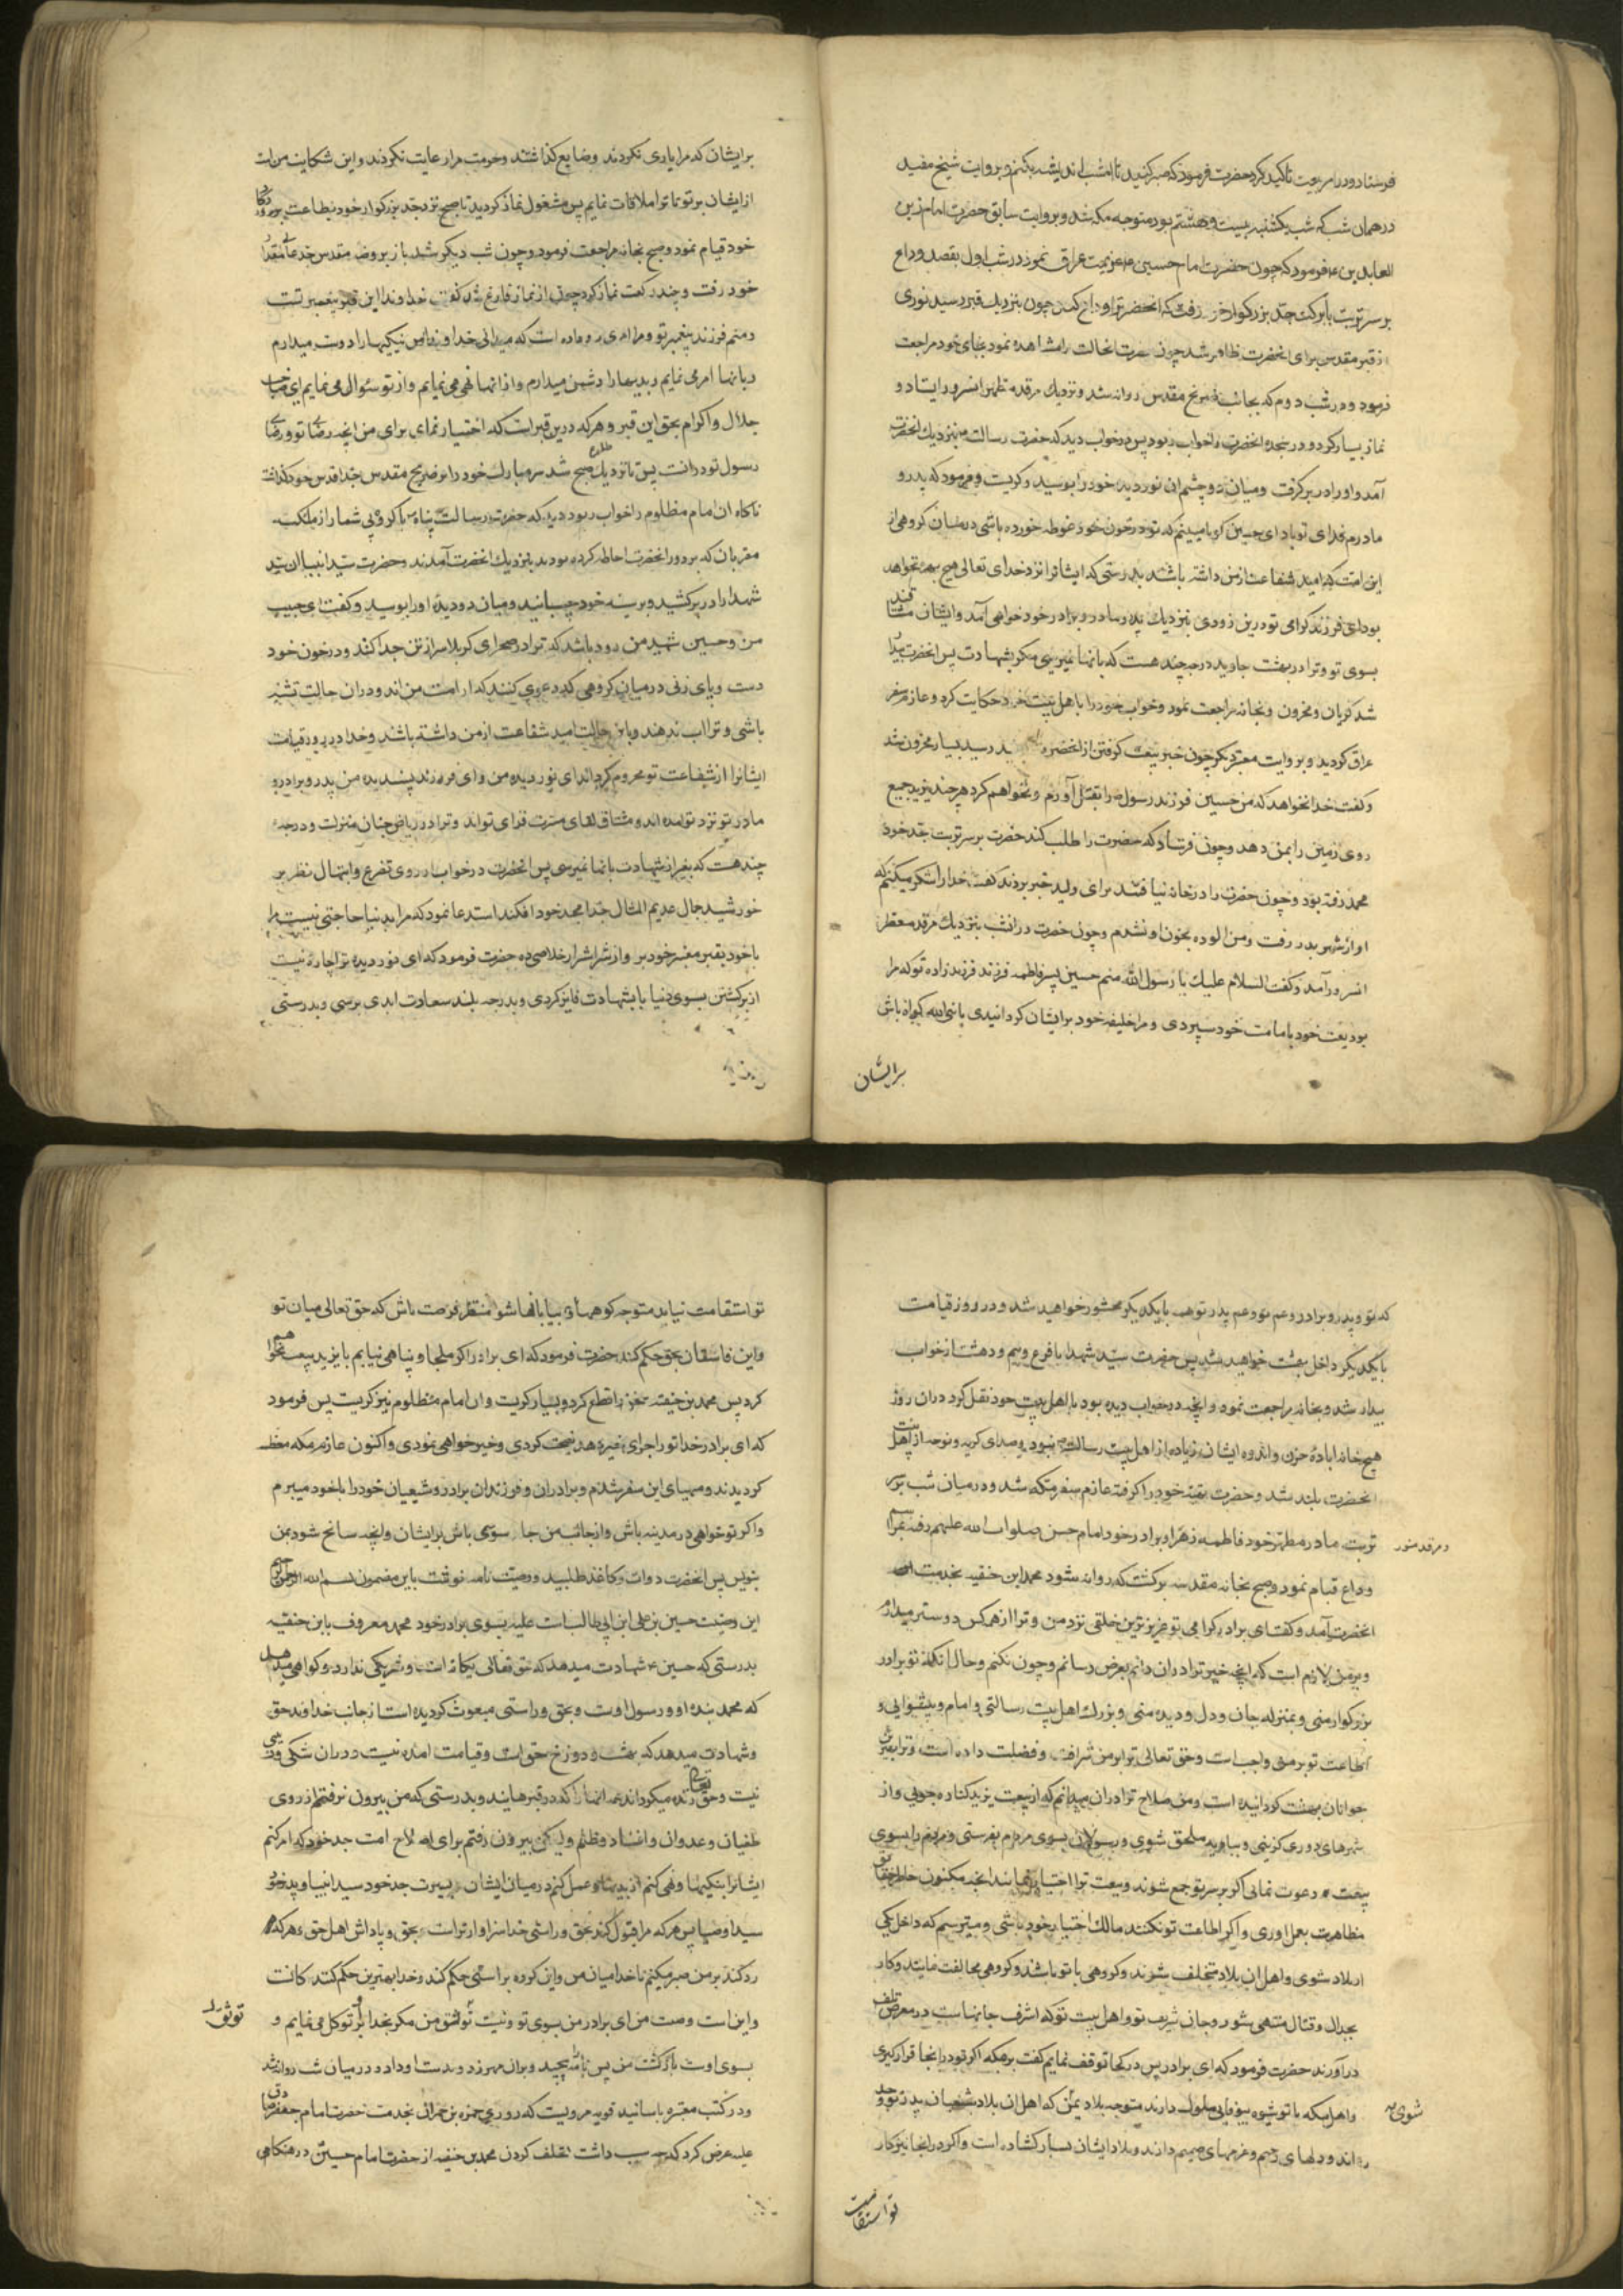 فرستاد و در امر بیعت تاکید کرد حضرت فرمود که صبر کنید تا امشب اندیشه بکنم و بروایت شیخ مفید
در همان شب که شب یکشنبه بیست و هشتم بود متوجه مکه شد و بروایت سابق حضرت امام زین
العابدین ع فرمود که چون حضرت امام حسین ع عزیمت عراق نمود در شب اول بقصد وداع
بر سر تربت بابرکت جد بزرکوار خود رفت که انحضرترا وداع کند چون بنزدیک قبر رسید نوری
از قبر مقدس برای انحضرت ظاهر شد چون حضرت انحالت را مشاهده نمود بجای خود مراجعت
فرمود و در شب دوم که بجانب ضریح مقدس روانه شد و نزدیک مرقد مطهر انسرور ایستاد و
نماز بسیار کرد و در سجده انحضرت را خواب ربود پس در خواب دید که حضرت رسالت ص بنزدیک انحضرت
آمد و او را در بر کرفت و میان دو چشم ان نوردیده خود را بوسید و کریست و فرمود که پدر و
مادرم فدای تو باد ای حسین کویا میبینم که تو در خون خود غوطه خورده باشی در میان کروهی از
این امت که امید شفاعت از من داشته باشند بدرستی که ایشانرا نزد خدای تعالی هیچ بهره نخواهد
بود ای فرزند کرامی تو درین زودی بنزدیک پدر و مادر و برادر خود خواهی آمد و ایشان مشتاقند
بسوی تو و ترا در بهشت جاوید درجه چند هست که بانها نمیرسی مکر بشهادت پس انحضرت بیدار
شد کریان و محزون و بخانه مراجعت نمود و خواب خود را باهل بیت خود حکایت کرد و عازم سفر
عراق کردید و بروایت معتبر دیکر چون خبر بیعت کرفتن از انحضرت رسید بسیار محزون شد
و کفت خدا نخواهد که من حسین فرزند رسول ص را بقتل آورم و نخواهم کرد هر چند یزید جمیع
روی زمین را بمن دهد و چون فرستاد که حضرت را طلب کند حضرت بر سر تربت جد خود
محمد رفته بود و چون حضرت را در خانه نیافتند برای ولید خبر بردند کفت خدا را شکر میکنم که
او از شهر بدر رفت و من الوده بخون او نشدم و چون حضرت در انشب بنزدیک مرقد معطر
انسرور آمد و کفت السلام علیک یا رسول الله منم حسین پسر فاطمه فرزند فرزند زاده تو که مرا
بودیعت خود بامامت خود سپردی و مرا خلیفه خود بر ایشان کردانیدی یا نبی الله کواه باش
برایشان
بر ایشان که مرا یاری نکردند و ضایع کذاشتند و حرمت مرا رعایت نکردند و این شکایت من است
از ایشان بر تو تا ترا ملاقات نمایم پس مشغول نماز کردید تا صبح نزد جد بزرکوار خود بطاعت پروردکار
خود قیام نمود و صبح بخانه مراجعت فرمود و چون شب دیکر شد باز بروضه مقدس جد عالیمقدار
خود رفت و چند رکعت نماز کرد چون از نماز فارغ شد کفت خداوندا این قبر پیغمبر تست
و منم فرزند پیغمبر تو و مرا امری رو داده است که میدانی خداوندا من نیکیها را دوست میدارم
و بانها امر می نمایم و بدیها را دشمن میدارم و از انها نهی می نمایم و از تو سئوال می نمایم ای صاحب
جلال و اکرام بحق این قبر و هر که درین قبر است که اختیار نمای برای من انچه رضای تو و رضای
رسول تو در انست پس تا نزدیک طلوع صبح شد سر مبارک خود را بر ضریح مقدس جد اقدس خود کذاشت
ناکاه ان امام مظلوم را خواب ربود دید که حضرت رسالت پناه ص با کروهی بی شمار از ملئکه
مقربان که بر دور انحضرت احاطه کرده بودند بنزدیک انحضرت آمدند و حضرت سید انبیا ان سید
شهدا را در بر کشید و بر سینه خود چسبانید و میان دو دیده او را بوسید و کفت ای حبیب
من و حسین شهید من زود باشد که ترا در صحرای کربلا سر از تن جدا کنند و در خون خود
دست و پای زنی در میان کروهی که دعوی کنند که از امت من اند و در ان حالت تشنه
باشی و ترا اب ندهند و باین حالت امید شفاعت از من داشته باشند و خدا در روز قیامت
ایشانرا از شفاعت تو محروم کرداند ای نوردیده من و ای فرزند پسندیده من پدر و برادر و
مادر تو نزد تو امده اند و مشتاق لقای مسرت فزای تواند و ترا در ریاض جنان منزلت و درجه
چند هست که بغیر از شهادت بانها نمیرسی پس انحضرت در خواب از روی تضرع و ابتهال نظر بر
خورشید جمال عدیم المثال جد امجد خود افکند استدعا نمود که مرا بدنیا حاجتی نیست مرا
با خود بقبر معنبر خود بر و از شر اشرار خلاصی ده حضرت فرمود که ای نوردیده ترا چاره نیست
از برکشتن بسوی دنیا تا بشهادت فایز کردی و بدرجه بلند سعادت ابدی برسی و بدرستی
که تو و پدر و برادر و عم تو و عم پدر تو همه با یکدیکر محشور خواهید شد و در روز قیامت
با یکدیکر داخل بهشت خواهید شد پس حضرت سید شهدا با فزع و بیم و دهشت از خواب
بیدار شد و بخانه مراجعت نمود و انچه در خواب دیده بود با اهل بیت خود نقل کرد در ان روز
هیچ خانه اباده حزن و اندوه ایشان زیاده از اهل بیت رسالت ص نبود و صدای کریه و نوحه از اهل بیت
انحضرت بلند شد و حضرت بقیه خود را کرفته عازم سفر مکه شد و در میان شب بر سر
تربت مادر مطهر خود فاطمه زهرا و برادر خود امام حسن صلوات الله علیهم رفته بمراسم
و مرقد منور
وداع قیام نمود و صبح بخانه مقدسه برکشت که روانه شود محمد ابن حنفیه بخدمت
انحضرت آمد و کفت ای برادر کرامی تو عزیزترین خلقی نزد من و ترا از هر کس دوستر میدارم
و بر من لازم است که انچه خیر ترا در ان دانم بعرض رسانم و چون نکنم و حال انکه تو برادر
بزرکوار منی و بمنزله جان و دل و دیده منی و بزرک اهل بیت رسالتی و امام و پیشوایی و
اطاعت تو بر من واجب است و حق تعالی ترا بر من شرافت و فضلت داده است و ترا بهترین
جوانان بهشت کردانیده است و من صلاح ترا در ان میدانم که از بیعت یزید کناره جویی و از
شهرهای دوری کزینی و ببادیه ملحق شوی و رسولان بسوی مردم بفرستی و مردم را بسوی
بیعت دعوت نمائی اکر بر سر تو جمع شوند و بیعت ترا اختیار نمایند انچه مکنون خاطر حقایق
مظاهرت بعمل اوری و اکر اطاعت تو نکنند مالک اختیار خود باشی و میترسم که داخل یکی
از بلاد شوی و اهل ان بلاد مختلف شوند و کروهی با تو باشند و کروهی مخالفت نمایند و کار
بجدال و قتال منتهی شود و جان شریف تو و اهل بیت تو که اشرف جانهاست در معرض تلف
درآورند حضرت فرمود که ای برادر پس در کجا توقف نمایم کفت برو مکه اکر تو در انجا قرار کیری
و اهل مکه با تو شیوه بیوفایی سلوک دارند متوجه بلاد یمن شوی که اهل ان بلاد شیعیان پدر تو و جد
تو اند و دلهای رحیم و عزمهای صمیم دارند و بلاد ایشان بسیار کشاده است و اکر در انجا نیز کار
تو استقامت
تو استقامت نیابد متوجه کوهها و بیابانها شو و منتظر فرصت باش که حق تعالی میان تو
و این فاسقان بحق حکم کند حضرت فرمود که ای برادر اکر ملجا و پناهی نیابم با یزید بیعت نخواهم
کرد پس محمد بن حنفیه سخن را قطع کرد و بسیار کریست و ان امام مظلوم نیز کریست پس فرمود
که ای برادر خدا ترا جزای خیر دهد نصیحت کردی و خیرخواهی نمودی و اکنون عازم مکه معظمه
کردیدند و مهیای این سفر شدم و برادران و فرزندان برادر و شیعیان خود را با خود میبرم
و اکر تو خواهی در مدینه باش و از جانب من جاسوسی باش بر ایشان و انچه سانح شود بمن
بنویس پس انحضرت دوات و کاغذ طلبید و وصیت نامه نوشت باین مضمون بسم الله الرحمن الرحیم
این وصیت حسین بن علی ابن ابی طالب است علیه بسوی برادر خود محمد معروف بابن حنفیه
بدرستی که حسین ع شهادت میدهد که حق تعالی یکانه است و شریکی ندارد و کواهی میدهد
که محمد بنده او و رسول اوست و بحق و راستی مبعوث کردیده است از جانب خداوند حق
و شهادت میدهد که بهشت و دوزخ حق است و قیامت امدنیست و در ان شکی و ریبی
نیست و حق تعالی زنده میکرداند همه انها را که در قبرهایند و بدرستی که من بیرون نرفتم از روی
طغیان و عدوان و افساد و ظلم ولیکن بیرون رفتم برای اصلاح امت جد خود که امر کنم
ایشانرا بنیکیها و نهی کنم از بدیها و عمل کنم در میان ایشان بسیرت جد خود سید انبیا و پدر خود
سید اوصیا پس هر که مرا قبول کند بحق و راستی خدا سزاوارتر است بحق و پاداش اهل حق و هر که
رد کند بر من صبر میکنم تا خدا میان من و این کروه براستی حکم کند و خدا بهترین حکم کننده کانست
و این است وصیت من ای برادر من بسوی تو و نیست توفیق من مکر بخدا بر او توکل می نمایم و
بسوی اوست بازکشت من پس نامه پیچید و بران مهر زد و بدست او داد و در میان شب روانه شد
و در کتب معتبره باسانید قویه مرویست که روزی حمزه بن حمران بخدمت حضرت امام جعفر صادق
علیه عرض کرد که سبب داشت تخلف کردن محمد بن حنفیه از حضرت امام حسین در هنکامی